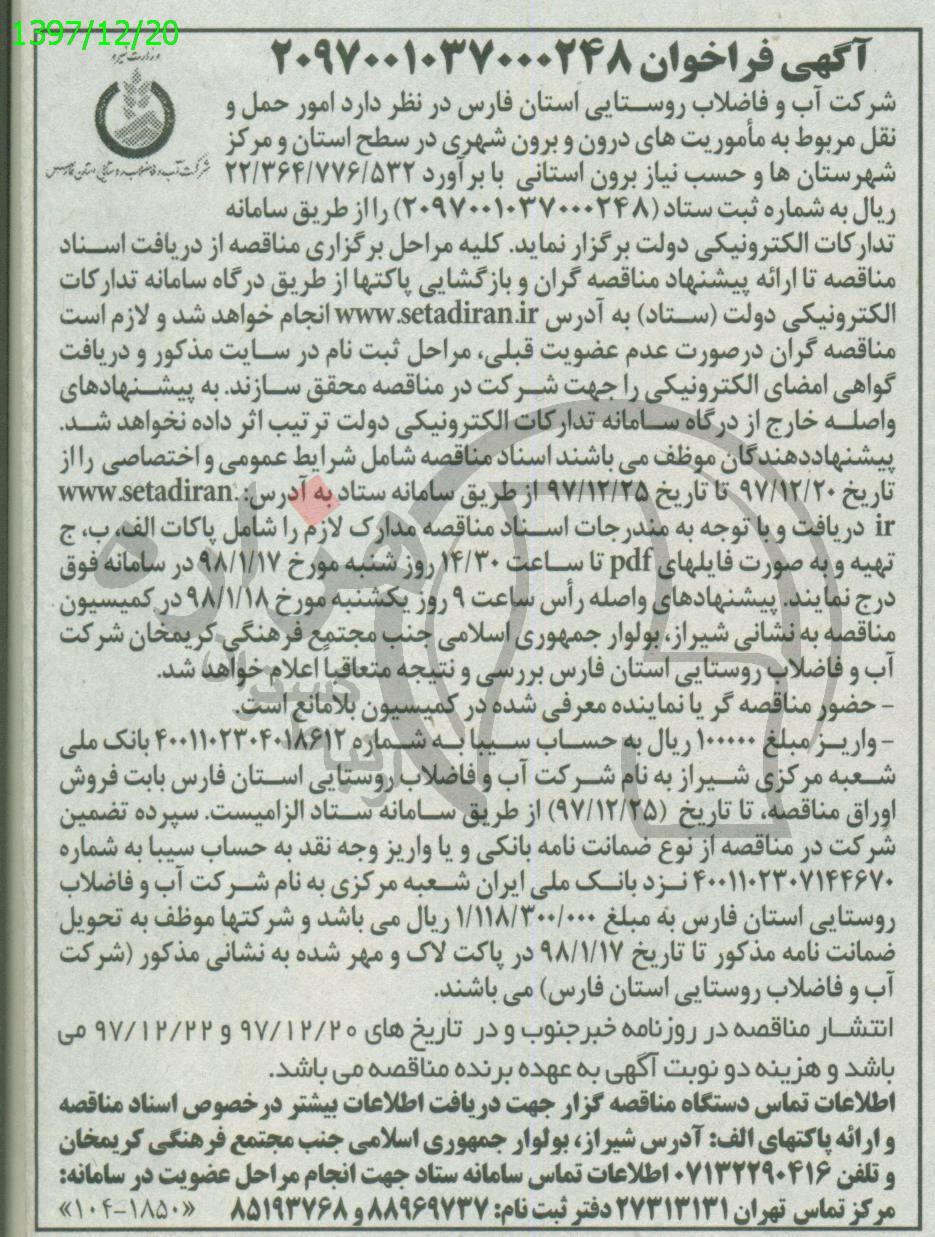 1397/12/20
آگهی فراخوان ۲۰۹۷۰۰۱۰۳۷۰۰۰۲۴۸
وزارت نیرو
شرکت آب و فاضلاب روستایی استان فارس
شرکت آب و فاضلاب روستایی استان فارس در نظر دارد امور حمل و
نقل مربوط به مأموریت های درون و برون شهری در سطح استان و مرکز
شهرستان ها و حسب نیاز برون استانی با برآورد ۲۲/۳۶۴/۷۷۶/۵۳۲
ریال به شماره ثبت ستاد (۲۰۹۷۰۰۱۰۳۷۰۰۰۲۴۸) را از طریق سامانه
تدارکات الکترونیکی دولت برگزار نماید. کلیه مراحل برگزاری مناقصه از دریافت اسناد
مناقصه تا ارائه پیشنهاد مناقصه گران و بازگشایی پاکتها از طریق درگاه سامانه تدارکات
الکترونیکی دولت (ستاد) به آدرس www.setadiran.ir انجام خواهد شد و لازم است
مناقصه گران درصورت عدم عضویت قبلی، مراحل ثبت نام در سایت مذکور و دریافت
گواهی امضای الکترونیکی را جهت شرکت در مناقصه محقق سازند. به پیشنهادهای
واصله خارج از درگاه سامانه تدارکات الکترونیکی دولت ترتیب اثر داده نخواهد شد.
پیشنهاددهندگان موظف می باشند اسناد مناقصه شامل شرایط عمومی و اختصاصی را از
تاریخ ۹۷/۱۲/۲۰ تا تاریخ ۹۷/۱۲/۲۵ از طریق سامانه ستاد به آدرس: www.setadiran.
ir دریافت و با توجه به مندرجات اسناد مناقصه مدارک لازم را شامل پاکات الف، ب، ج
تهیه و به صورت فایلهای pdf تا ساعت ۱۴/۳۰ روز شنبه مورخ ۹۸/۱/۱۷ در سامانه فوق
درج نمایند. پیشنهادهای واصله رأس ساعت ۹ روز یکشنبه مورخ ۹۸/۱/۱۸ در کمیسیون
مناقصه به نشانی شیراز، بولوار جمهوری اسلامی جنب مجتمع فرهنگی کریمخان شرکت
آب و فاضلاب روستایی استان فارس بررسی و نتیجه متعاقباً اعلام خواهد شد.
- حضور مناقصه گر یا نماینده معرفی شده در کمیسیون بلامانع است.
- واریز مبلغ ۱۰۰۰۰۰ ریال به حساب سیبا به شماره ۴۰۰۱۱۰۲۳۰۴۰۱۸۶۱۲ بانک ملی
شعبه مرکزی شیراز به نام شرکت آب و فاضلاب روستایی استان فارس بابت فروش
اوراق مناقصه، تا تاریخ (۹۷/۱۲/۲۵) از طریق سامانه ستاد الزامیست. سپرده تضمین
شرکت در مناقصه از نوع ضمانت نامه بانکی و یا واریز وجه نقد به حساب سیبا به شماره
۴۰۰۱۱۰۲۳۰۷۱۴۴۶۷۰ نزد بانک ملی ایران شعبه مرکزی به نام شرکت آب و فاضلاب
روستایی استان فارس به مبلغ ۱/۱۱۸/۳۰۰/۰۰۰ ریال می باشد و شرکتها موظف به تحویل
ضمانت نامه مذکور تا تاریخ ۹۸/۱/۱۷ در پاکت لاک و مهر شده به نشانی مذکور (شرکت
آب و فاضلاب روستایی استان فارس) می باشند.
انتشار مناقصه در روزنامه خبرجنوب و در تاریخ های ۹۷/۱۲/۲۰ و ۹۷/۱۲/۲۲ می
باشد و هزینه دو نوبت آگهی به عهده برنده مناقصه می باشد.
اطلاعات تماس دستگاه مناقصه گزار جهت دریافت اطلاعات بیشتر درخصوص اسناد مناقصه
و ارائه پاکتهای الف: آدرس شیراز، بولوار جمهوری اسلامی جنب مجتمع فرهنگی کریمخان
و تلفن ۰۷۱۳۲۲۹۰۴۱۶ اطلاعات تماس سامانه ستاد جهت انجام مراحل عضویت در سامانه:
مرکز تماس تهران ۲۷۳۱۳۱۳۱ دفتر ثبت نام: ۸۸۹۶۹۷۳۷ و ۸۵۱۹۳۷۶۸ «۱۰۴-۱۸۵۰»